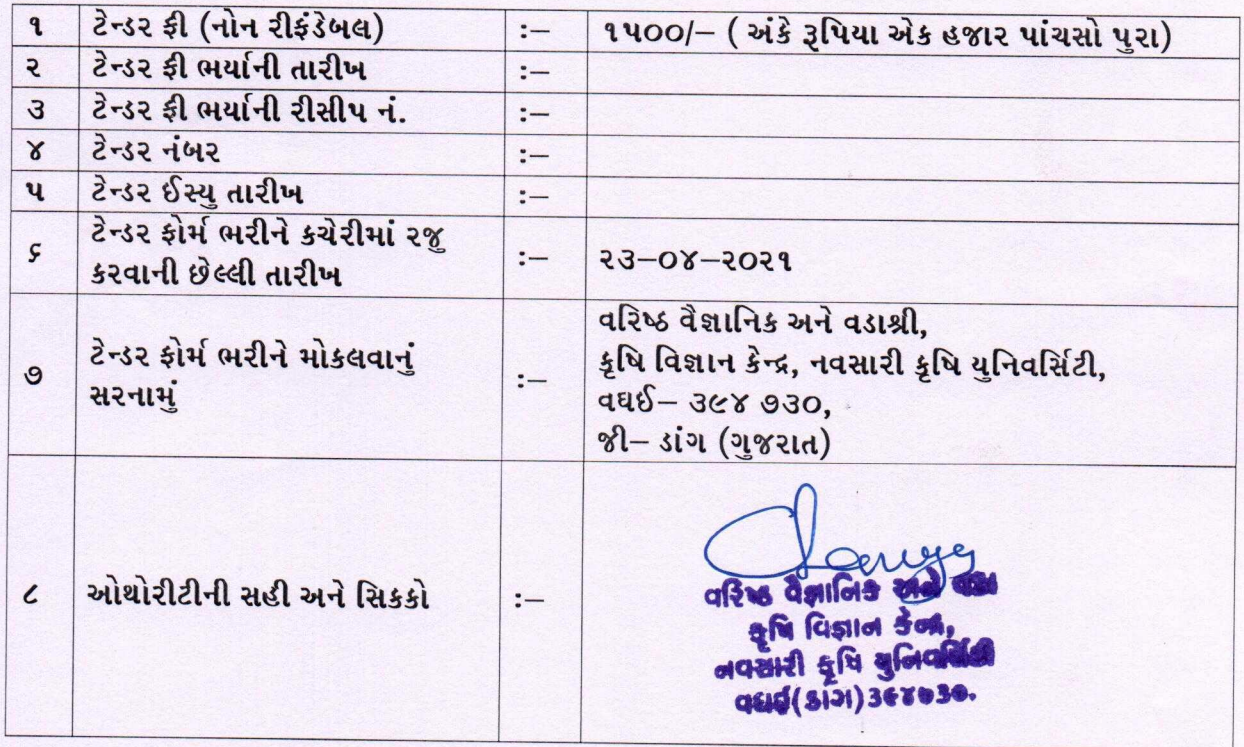 ૧ ટેન્ડર ફી (નોન રીફંડેબલ) :— ૧૫૦૦/— ( અંકે રૂપિયા એક હજાર પાંચસો પુરા)
૨ ટેન્ડર ફી ભર્યાની તારીખ :—
૩ ટેન્ડર ફી ભર્યાની રીસીપ નં. :—
૪ ટેન્ડર નંબર :—
૫ ટેન્ડર ઈસ્યુ તારીખ :—
૬ ટેન્ડર ફોર્મ ભરીને કચેરીમાં રજુ
કરવાની છેલ્લી તારીખ :— ૨૩—૦૪—૨૦૨૧
૭ ટેન્ડર ફોર્મ ભરીને મોકલવાનું
સરનામું :—
વરિષ્ઠ વૈજ્ઞાનિક અને વડાશ્રી,
કૃષિ વિજ્ઞાન કેન્દ્ર, નવસારી કૃષિ યુનિવર્સિટી,
વઘઈ— ૩૯૪ ૭૩૦,
જી— ડાંગ (ગુજરાત)
૮ ઓથોરીટીની સહી અને સિકકો :—
વરિષ્ઠ વૈજ્ઞાનિક અને વડા
કૃષિ વિજ્ઞાન કેન્દ્ર,
નવસારી કૃષિ યુનિવર્સિટી
વઘઈ(ડાંગ)૩૯૪૭૩૦.